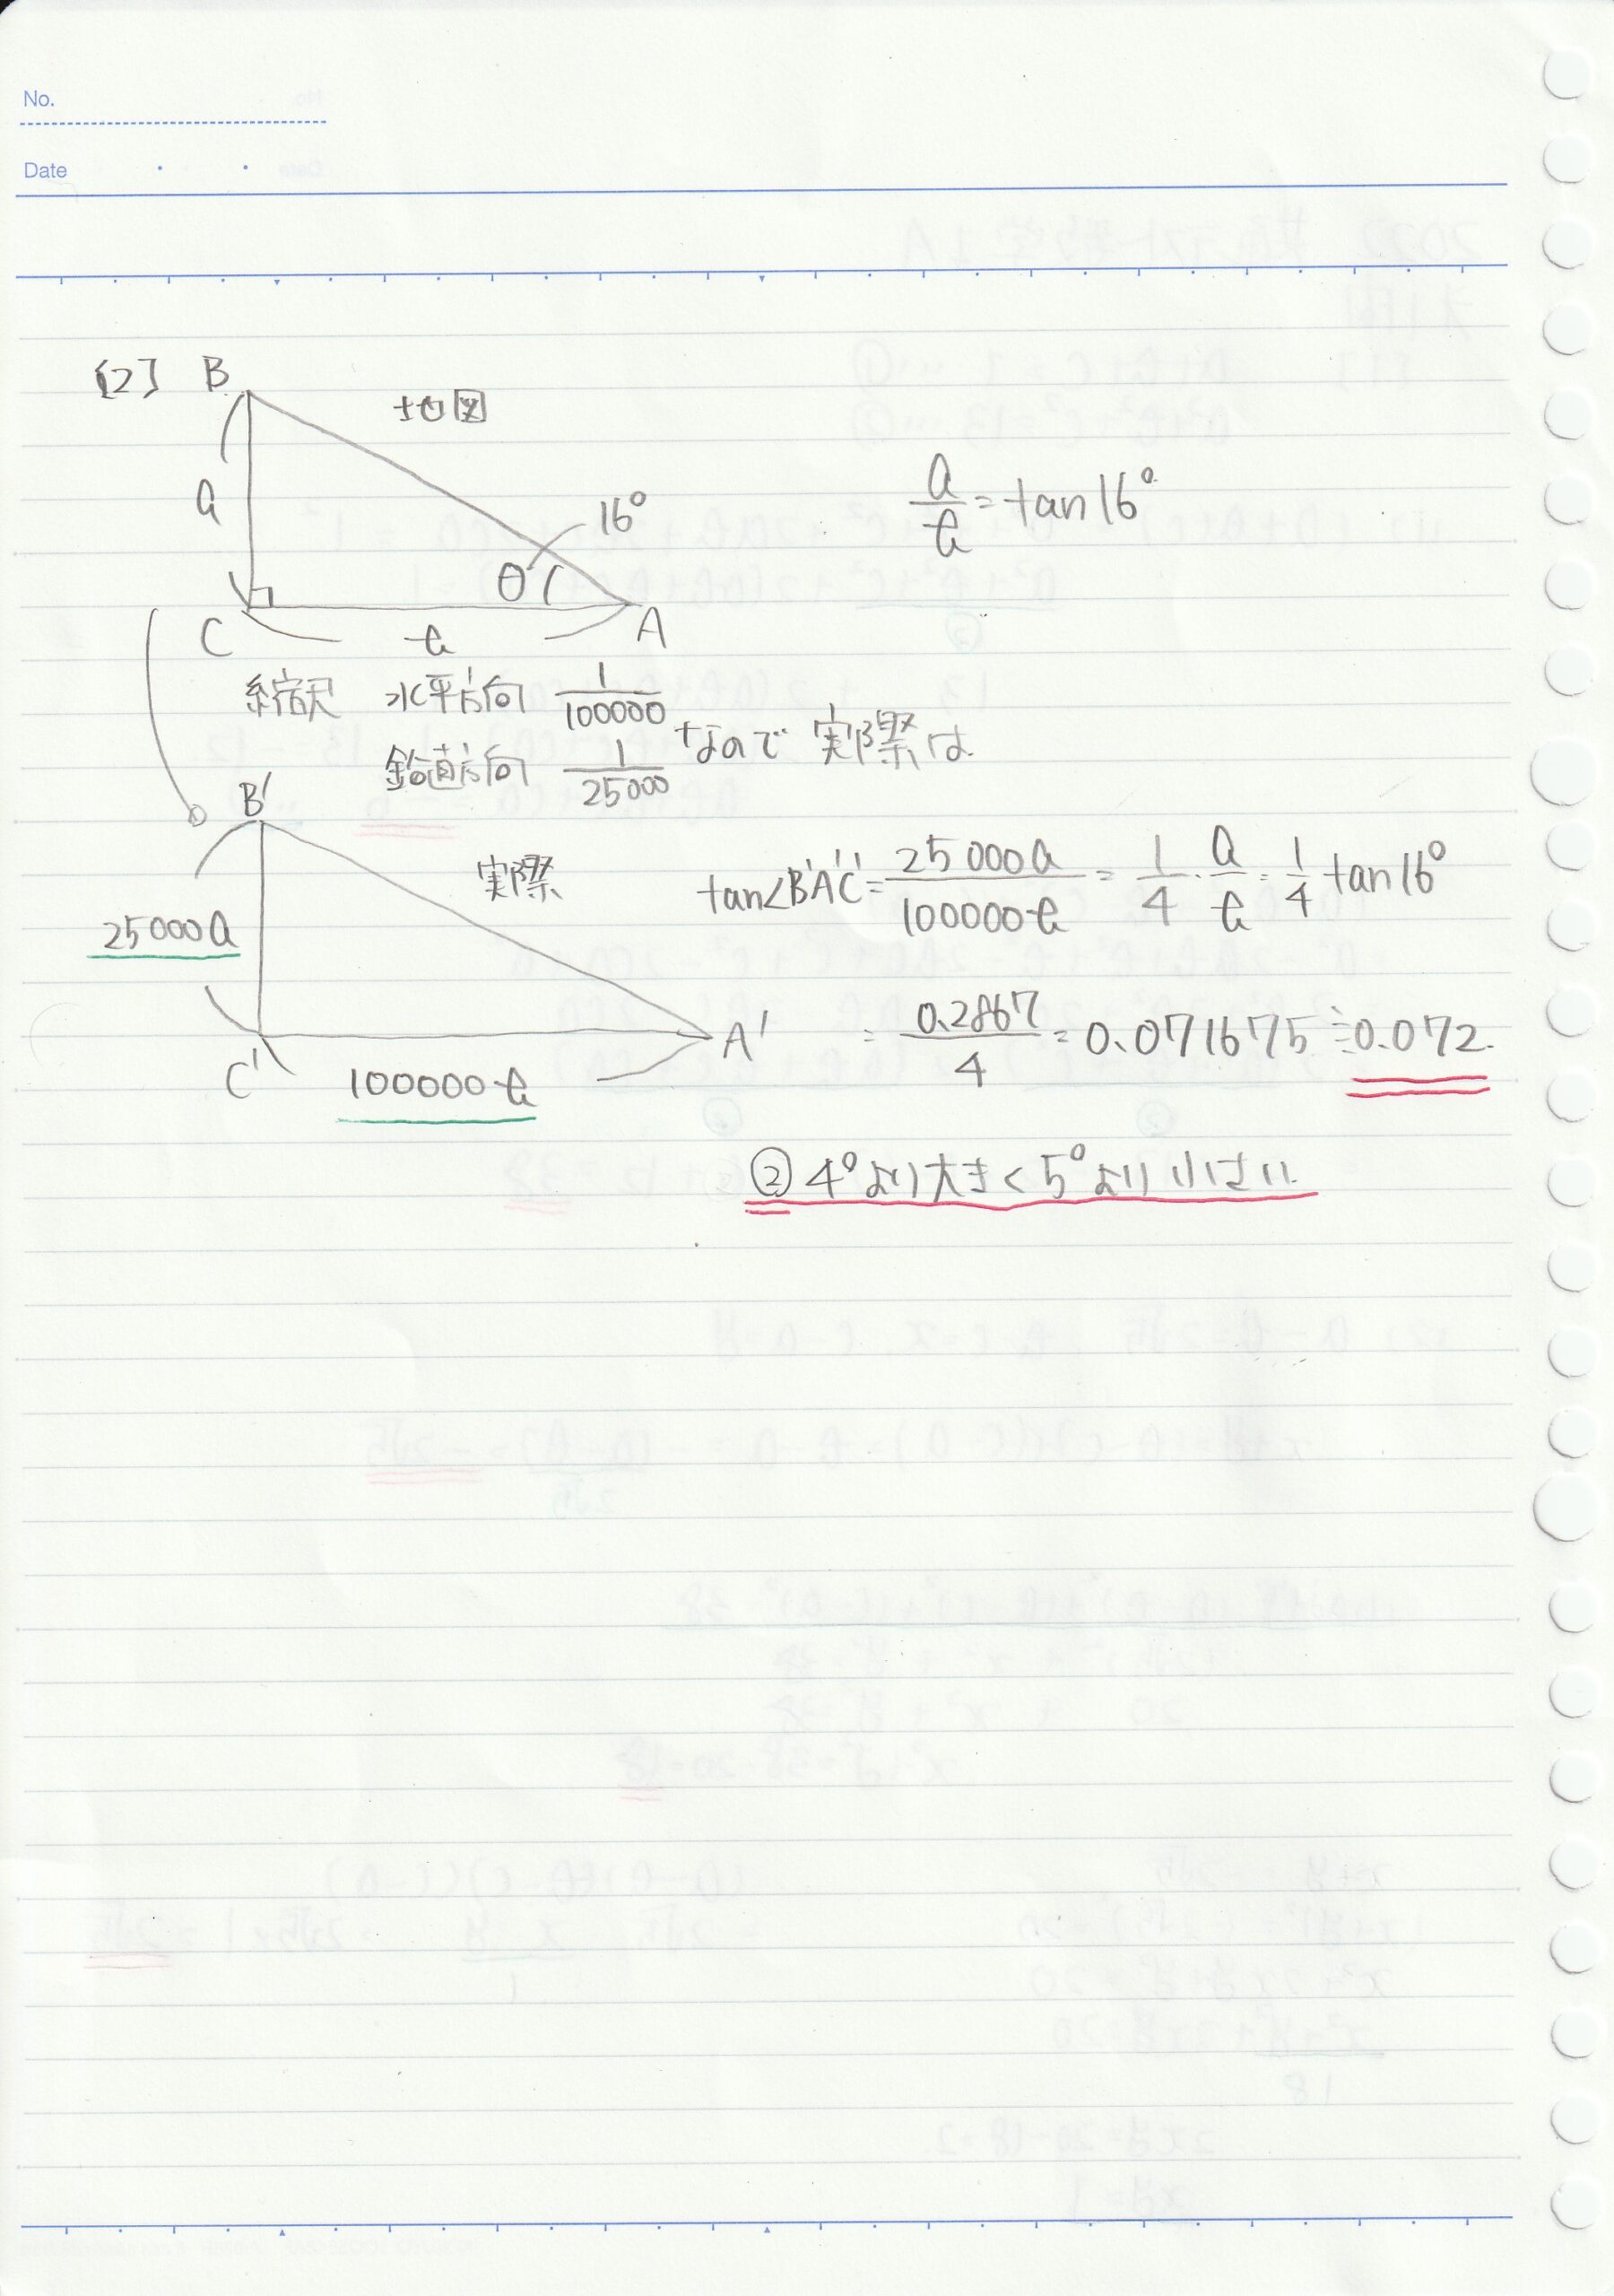 No.
Date
[2] B 地図
a 16°
θ
C b A
a/b = tan16°
縮尺 水平方向 1/100000
鉛直方向 1/25000 なので 実際は
B'
実際
25000a
C' 100000b A'
tan∠B'A'C' = 25000a/100000b = 1/4・a/b = 1/4 tan16°
= 0.2867/4 = 0.071675 ≒ 0.072
② 4°より大きく5°より小さい